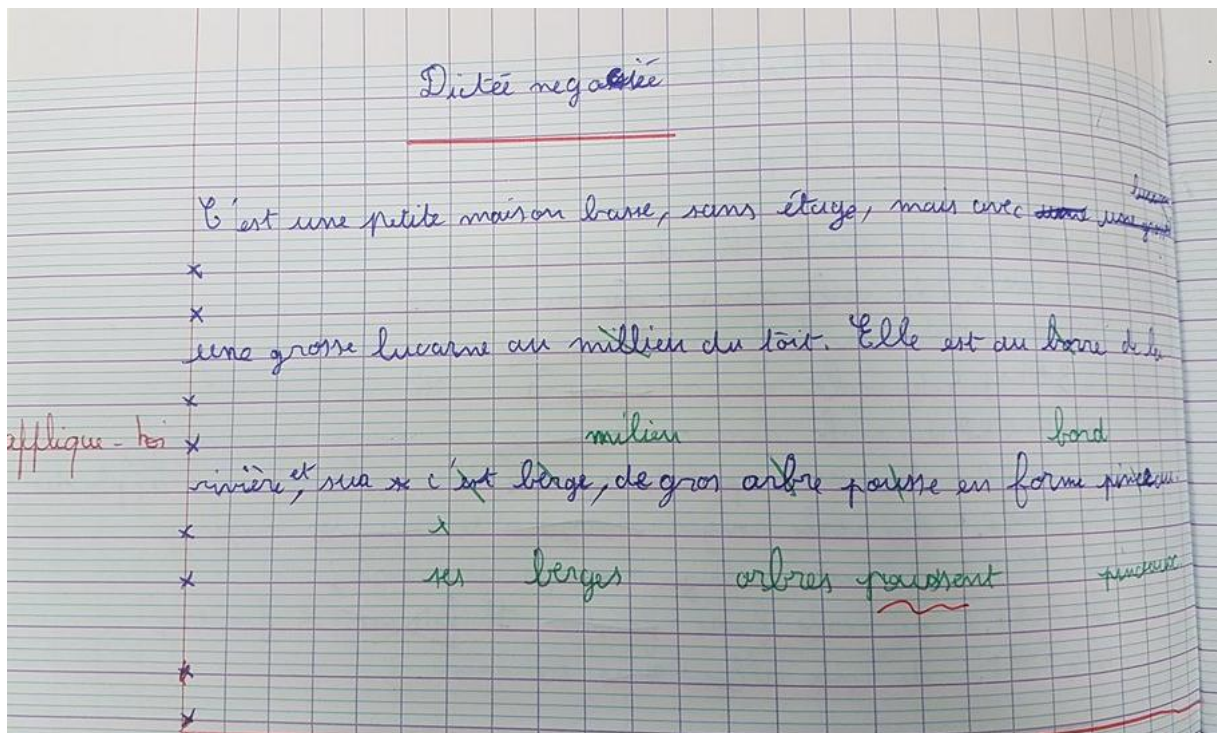 Dictée
C'est une petite maison basse, sans étage, mais avec
une grosse lucarne au millien du toit. Elle est au borre de la
applique-toi
milieu bord
rivière, et sua c'est berge, de gros arbre pousse en forme pinceau.
ses berges arbres poussent pinceaux